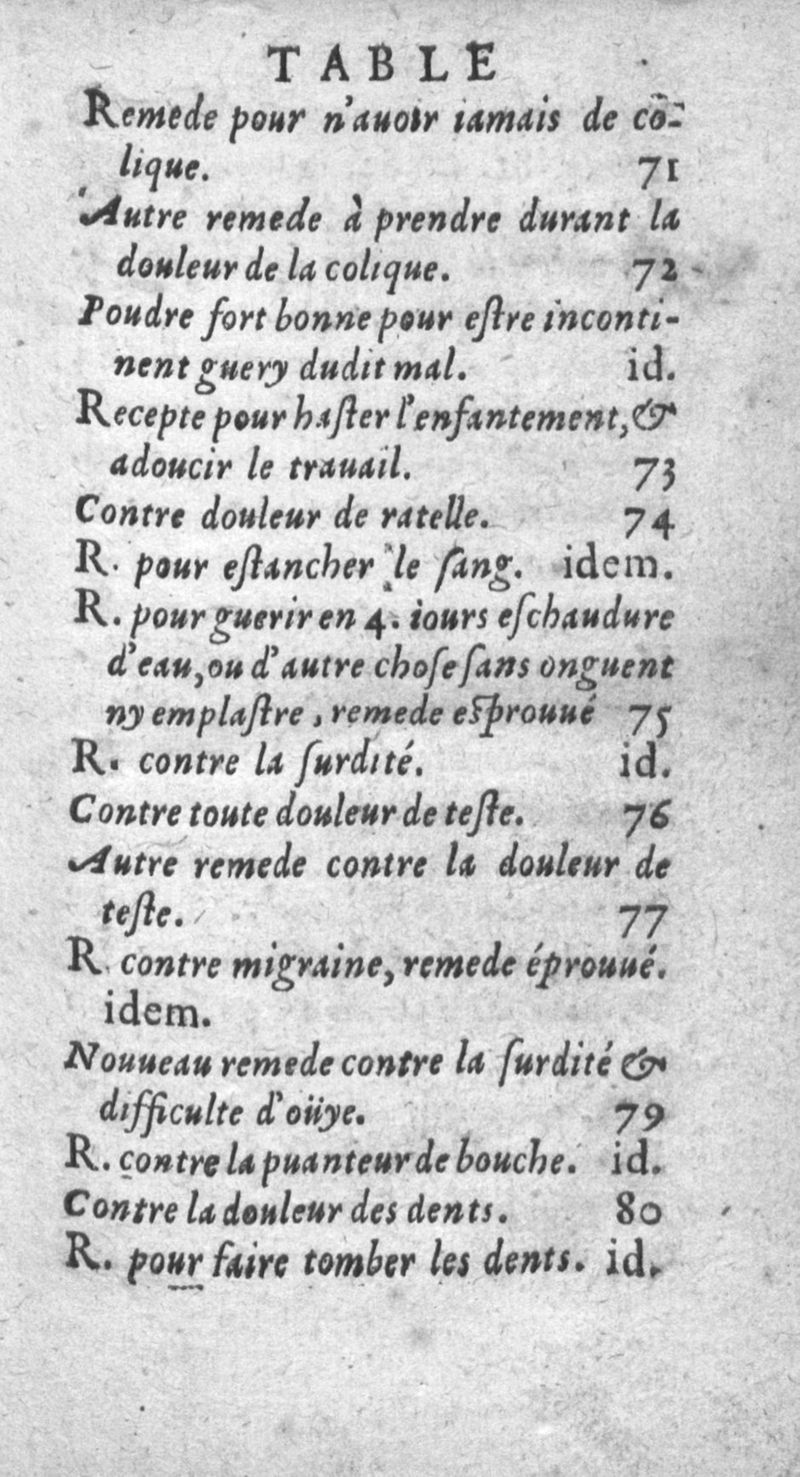 TABLE
Remede pour n'auoir iamais de co-
lique. 71
Autre remede à prendre durant la
douleur de la colique. 72
Poudre fort bonne pour eſtre inconti-
nent guery dudit mal. id.
Recepte pour haſter l'enfantement, &
adoucir le trauail. 73
Contre douleur de ratelle. 74
R. pour eſtancher le ſang. idem.
R. pour guerir en 4. iours eſchaudure
d'eau, ou d'autre choſe ſans onguent
ny emplaſtre, remede eſprouué 75
R. contre la ſurdité. id.
Contre toute douleur de teſte. 76
Autre remede contre la douleur de
teſte. 77
R. contre migraine, remede éprouué.
idem.
Nouueau remede contre la ſurdité &
difficulte d'oüye. 79
R. contre la puanteur de bouche. id.
Contre la douleur des dents. 80
R. pour faire tomber les dents. id.